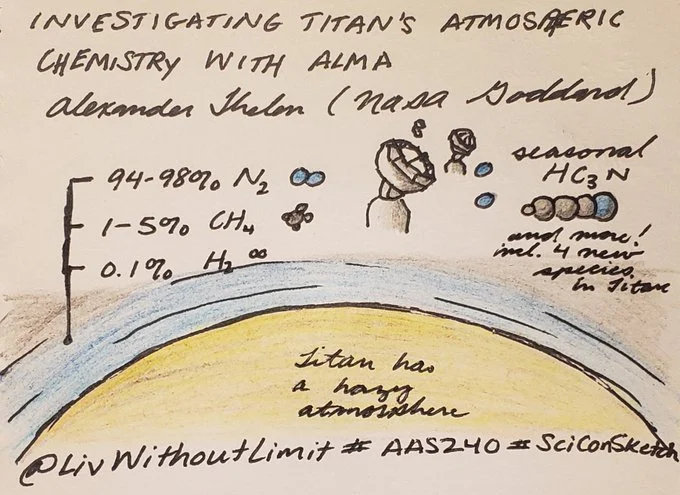 INVESTIGATING TITAN'S ATMOSPHERIC
CHEMISTRY WITH ALMA
Alexander Thelen (Nasa Goddard)
94-98% N₂
1-5% CH₄
0.1% H₂
seasonal
HC₃N
and more!
incl. 4 new
species
in Titan
Titan has
a hazy
atmosphere
@LivWithoutLimit # AAS240 # SciConSketch